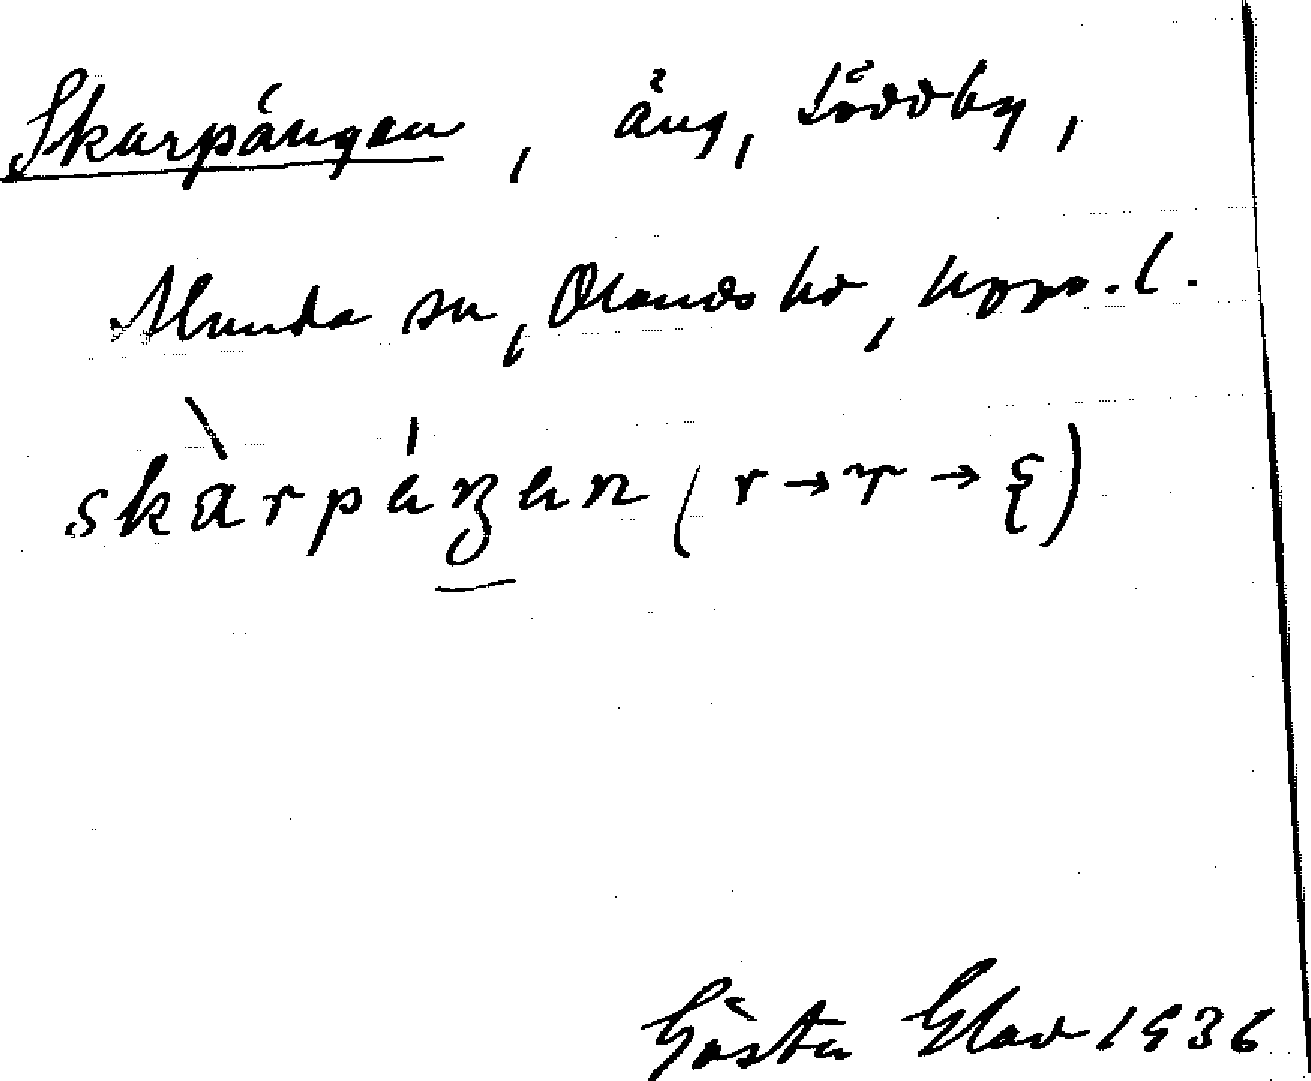 Skarpängen, äng, Löddby,
Alunda sn, Olands hd, Upps. l.
skàrpáŋan (r → r → ξ)
Gösta Glad 1936